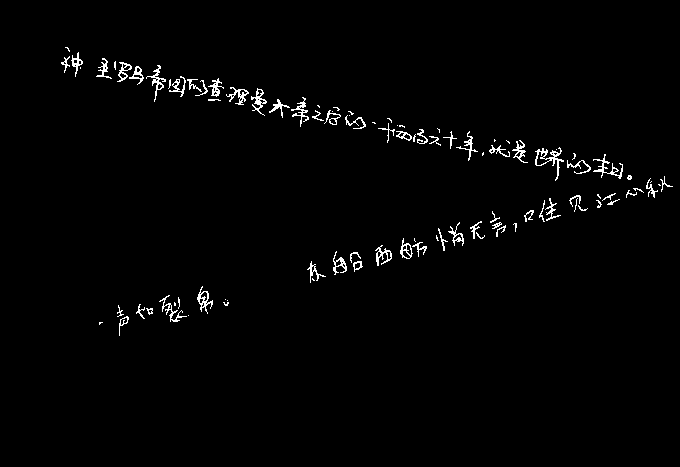 神圣罗马帝国的查理曼大帝之后的一千两百六十年，就是世界的末日。
东船西舫悄无言，唯见江心秋
一声如裂帛。